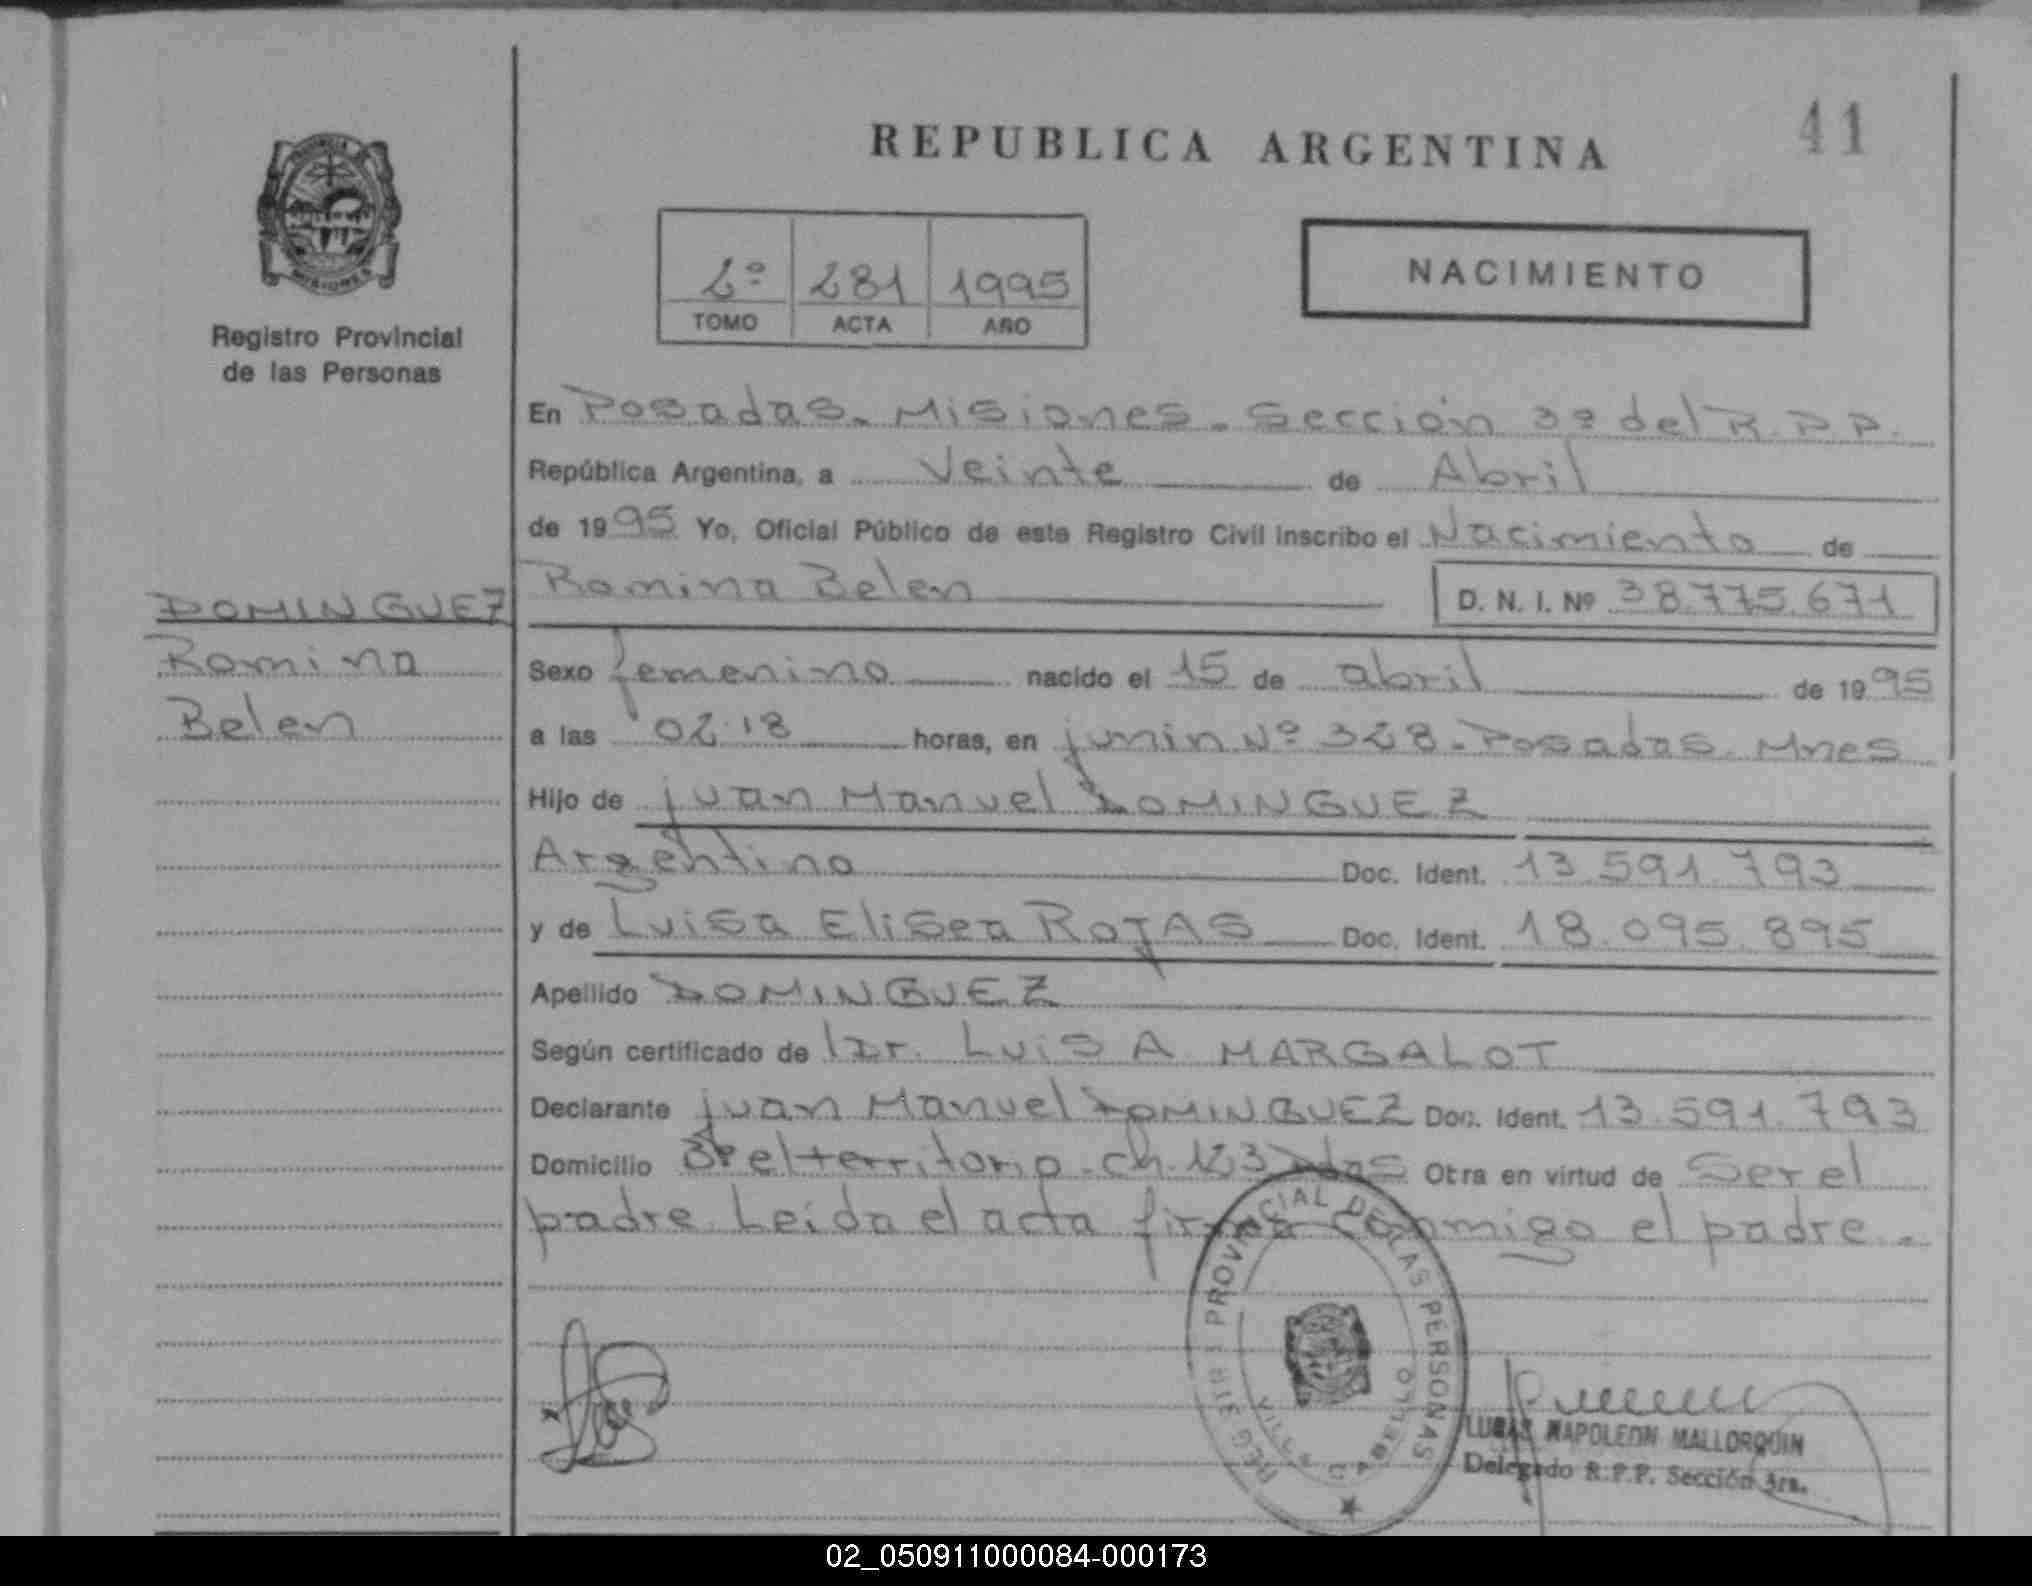 REPUBLICA ARGENTINA
41
PROVINCIA DE
MISIONES
Registro Provincial
de las Personas
2º 281 1995
TOMO ACTA AÑO
NACIMIENTO
En Posadas - Misiones - Sección 3º del R.P.P.
República Argentina, a Veinte de Abril
de 1995 Yo, Oficial Público de este Registro Civil inscribo el Nacimiento de
Romina Belen D. N. I. Nº 38.775.671
DOMINGUEZ
Romina
Belen
Sexo femenino nacido el 15 de abril de 1995
a las 02:18 horas, en junin Nº 328 - Posadas - Mnes
Hijo de juan Manuel DOMINGUEZ
Argentino Doc. Ident. 13.591.793
y de Luisa Elisea ROJAS Doc. Ident. 18.095.895
Apellido DOMINGUEZ
Según certificado de Dr. LUIS A MARGALOT
Declarante juan Manuel DOMINGUEZ Doc. Ident. 13.591.793
Domicilio Bº el territorio - ch. 123 Pdas Otra en virtud de Ser el
padre. Leida el acta firma conmigo el padre.
REG PROVINCIAL DE LAS PERSONAS
VILLA CABELLO
LUCAS NAPOLEON MALLORQUIN
Delegado R.P.P. Sección 3ra.
02_050911000084-000173